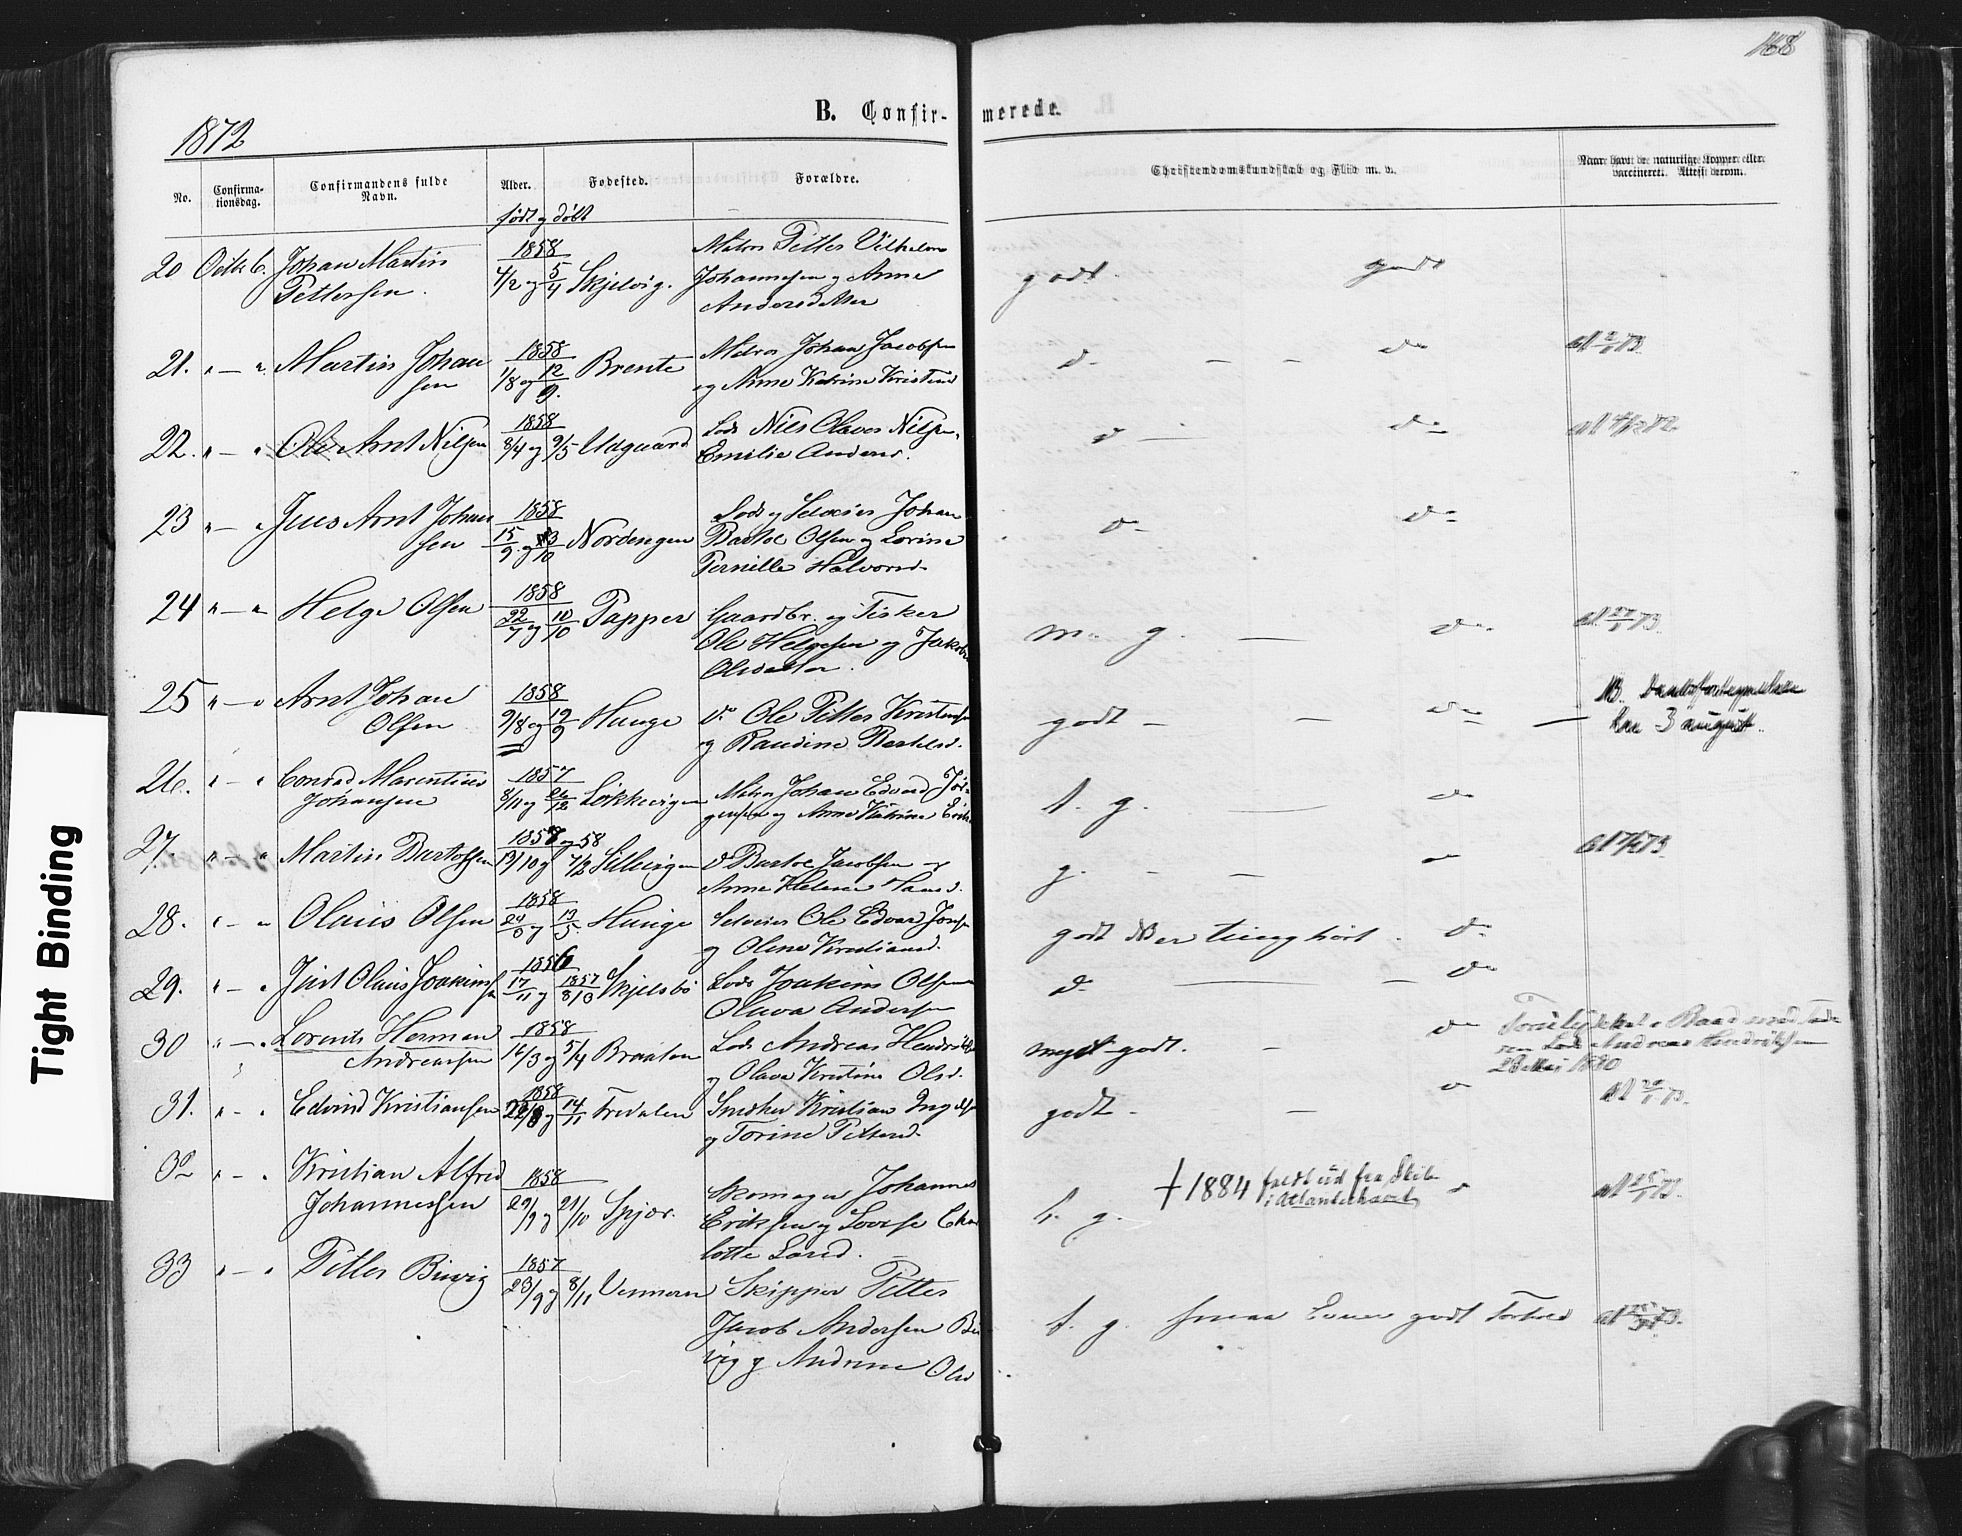 168
1872
B. Confir-
merede.
No.
Confirma-
tionsdag.
Confirmandens fulde
Navn.
Alder.
Fødested.
Forældre.
Christendomskundskab og Flid m. v.
Naar havt de naturlige Kopper eller
vaccineret. Attest derom.
født og døbt
20 Octb 6. Johan Martin
Pettersen.
1858
4/2 og 5/4 Skjelvig.
Matros Petter Vilhelm
Johannesen og Anne
Andersdatter
godt. godt
21. " — " Martin Johan
sen
1858
1/8 og 12/9. Brente
Matros Johan Jacobsen
og Anne Katrine Kristens
d. — — do
22. " — " Ole Arnt Nilsen
1858
8/4 og 9/5 Udgaard
Lods Nils Olaves Nilsen,
Emilie Anders.
d — do
23 " — " Jens Arnt Johan
sen
1858
15/9. og 3/10 Nordengen
Lods og Selveier Johan
Bartol Olsen og Lorine
Pernille Halvorsd.
do do
24 " — " Helge Olsen
1858
22/7 og 10/10 Papper
Gaardbr. og Fisker
Ole Helgesen og Jakob
Olsdatter.
m. g. — do
25 " — " Arnt Johan
Olsen
1858
9/8 og 19/9 Hauge
do Ole Petter Kristensen
og Randine Bertelsd.
godt — — do —
NB. Daabsfortegnelsen
har 3 august.
26. " — " Conrad Marentius
Johansen
1857
8/11 og 26/12 Løkkevigen
Matros Johan Edvard Jør-
gensen og Anne Katrine Erik
t. g. — do
27. " — " Martin Bartolsen
1857 og 58
19/10 og 7/2 Sillevigen
do Bartol Jacobsen og
Anne Helene Hansd.
g. — — do
28. " — " Olaus Olsen
1858
og 13/5. Hauge
Selveier Ole Edvard
og Olene Kristiansd.
godt NB er tunghørt. do
29. " — " Just Olaus Joakims
1856
17/11 og 1857 8/3 Skjelsbo
Lods Joakim Olsen
Olava Andersen
do — — do
30 " — " Lorents Herman
Andreassen
1858
16/3 og 5/4 Braaten
Lods Andreas Hendriks
og Olava Kristine Olsd.
meget godt. — do
Forulykket i Baad med Fade
ren Lods Andreas Hendriksen
28 Mai 1880
31. " — " Edvind Kristiansen
1858
22/8 og 14/11 Fredalen
Smeker Kristian
og Torine Pettersd.
godt — — do
32 " — " Kristian Alfred
Johannessen
1858
29/9 og 21/10 Spjær.
Skomager Johannes
Eriksen og Lovise Char
lotte Larsd.
t. g.
† 1884 faldt ud fra Skib
i Atlanterhavet
33 " — " Petter Bievig
1857
23/9 og 8/11 Vennern
Skipper Petter
Jacob Andersen Bie
vig og Andrine Olsd
t. g. smaa Evner godt Forhold
Tight Binding